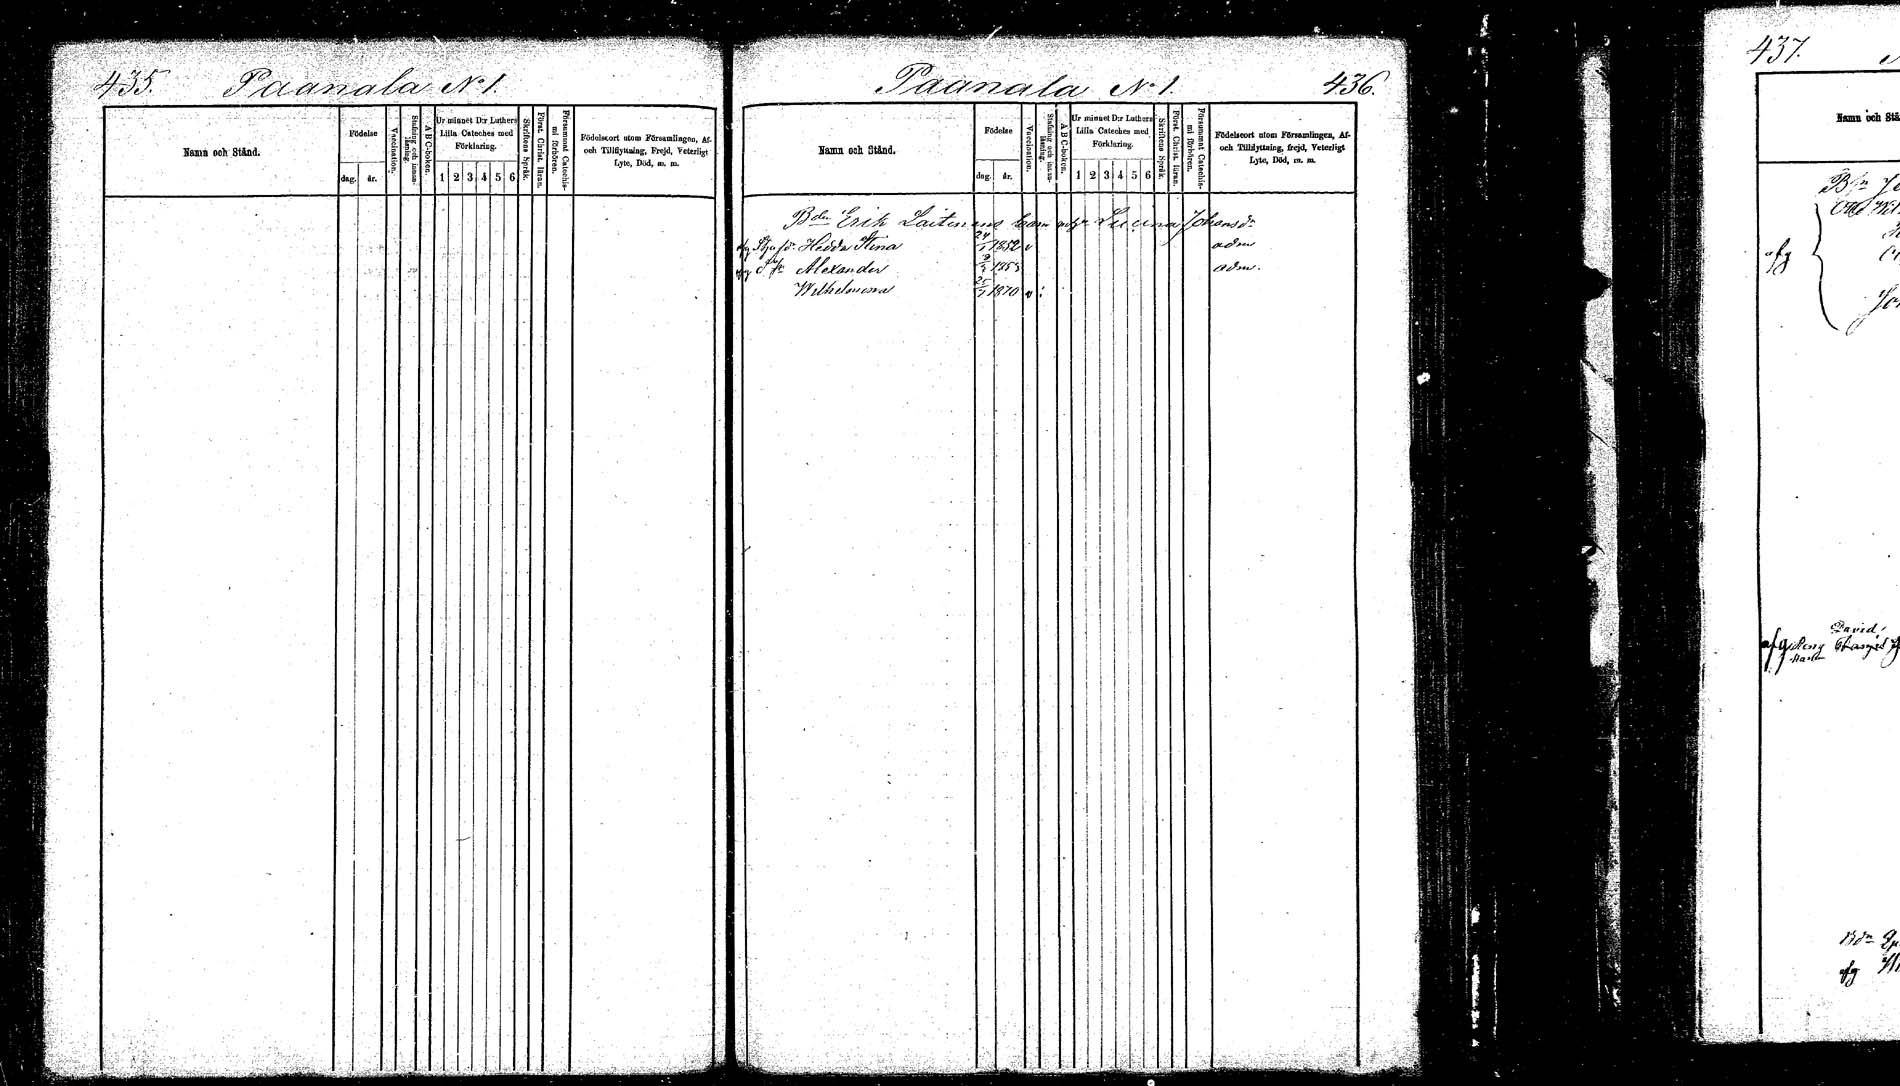 435. Paanala No 1.
Namn och Stånd.
Födelse
dag. år.
Vaccination.
Stafning och innan-läsning.
A B C-boken.
Ur minnet D:r Luthers
Lilla Cateches med
Förklaring.
1 2 3 4 5 6
Skriftens Språk.
Först. Christ. läran.
Försummat Catechis-mi förhören.
Födelseort utom Församlingen, Af-
och Tillflyttning, Frejd, Veterligt
Lyte, Död, m. m.
Paanala No 1. 436.
Namn och Stånd.
Födelse
dag. år.
Vaccination.
Stafning och innan-läsning.
A B C-boken.
Ur minnet D:r Luthers
Lilla Cateches med
Förklaring.
1 2 3 4 5 6
Skriftens Språk.
Först. Christ. läran.
Försummat Catechis-mi förhören.
Födelseort utom Församlingen, Af-
och Tillflyttning, frejd, Veterligt
Lyte, Död, m. m.
Bden Erik Laitinens barn Lucina Johansdr
Hedda Stina 1852 v adm
Alexander adm.
Wilhelmina 1870 v
437.
Namn och Stå
afg
David
afg
afg